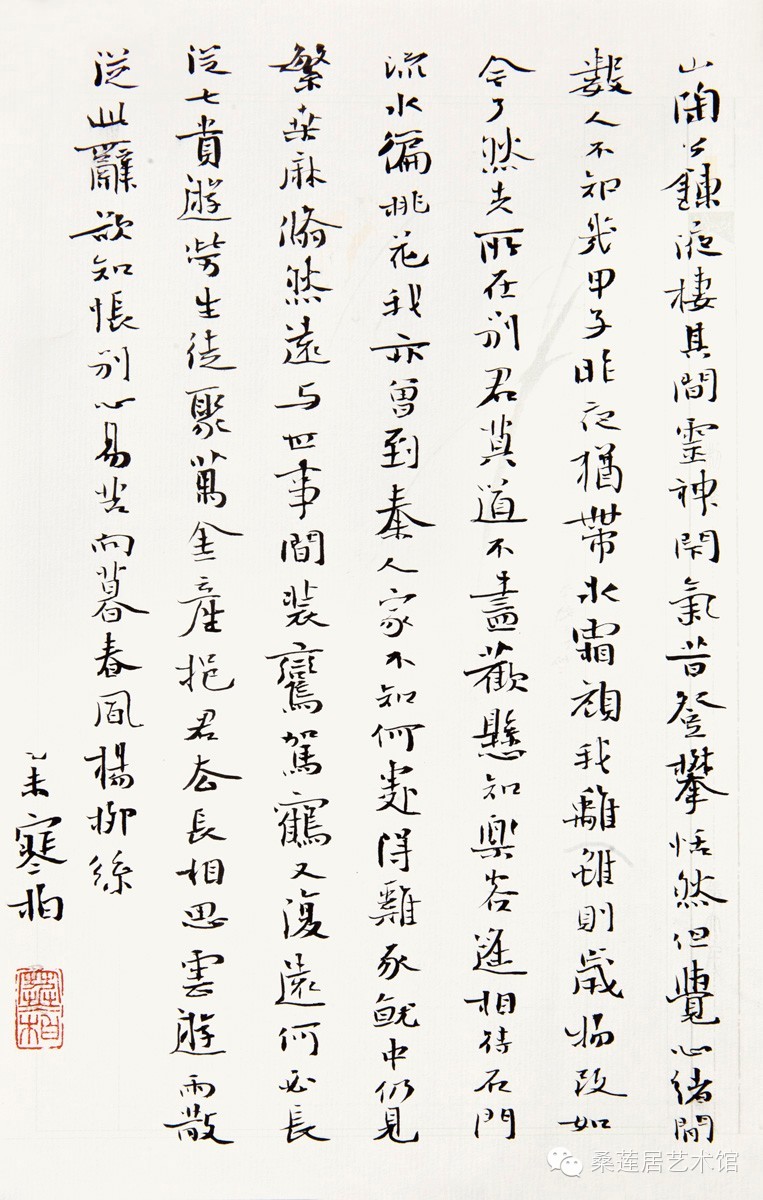 山陶公鍊液棲其間靈神閉氣昔登攀恬然但覺心緒閒
數人不知幾甲子昨夜猶帶氷霜顔我離雖則歲物改如
今了然失所在別君莫道不盡歡懸知樂客遥相待石門
流水徧桃花我亦曽到秦人家不知何處得雞豕就中仍見
繁桑麻翛然遠与世事間装鸞駕鶴又復遠何必長
從七貴遊勞生徒聚萬金産挹君去長相思雲遊雨散
從此辭欲知悵别心易苦向暮春風楊栁絲
乙未寒柏
寒柏
桑莲居艺术馆